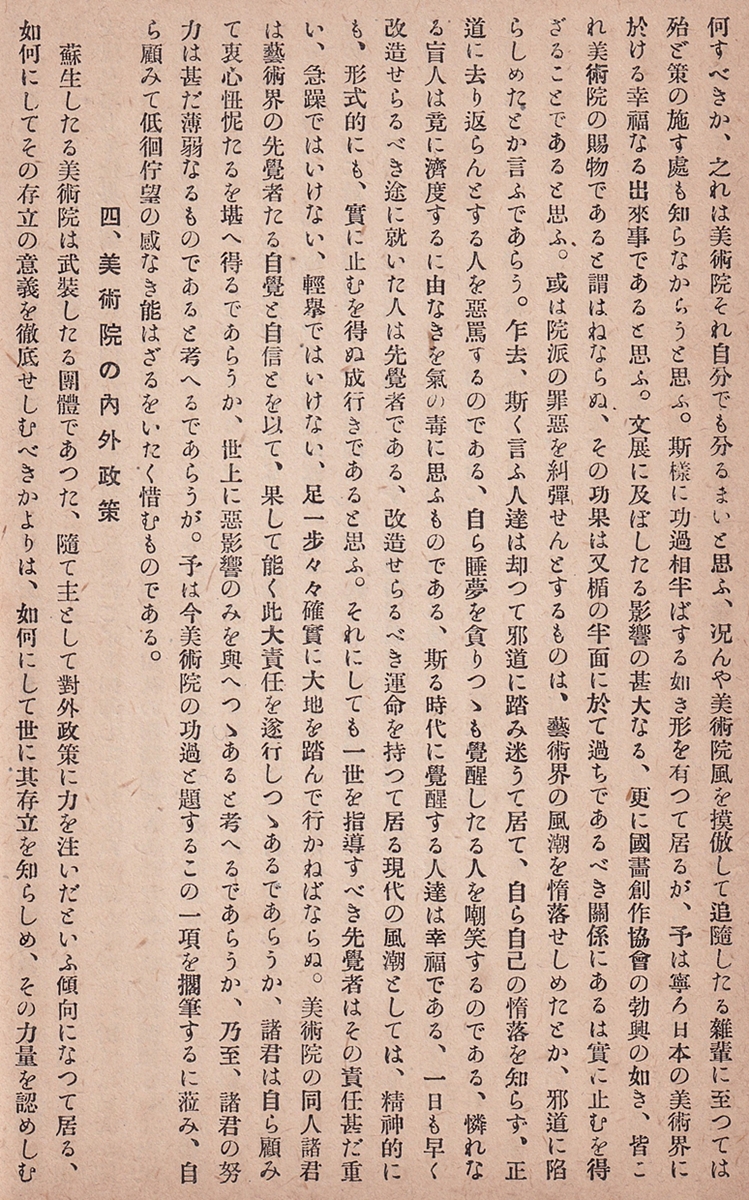 何すべきか、之れは美術院それ自分でも分るまいと思ふ、况んや美術院風を摸倣して追隨したる雜輩に至つては
殆ど策の施す處も知らなからうと思ふ。斯樣に功過相半ばする如き形を有つて居るが、予は寧ろ日本の美術界に
於ける幸福なる出來事であると思ふ。文展に及ぼしたる影響の甚大なる、更に國畵創作協會の勃興の如き、皆こ
れ美術院の賜物であると謂はねならぬ、その功果は又楯の半面に於て過ちであるべき關係にあるは實に止むを得
ざることであると思ふ。或は院派の罪惡を糾彈せんとするものは、藝術界の風潮を惰落せしめたとか、邪道に陷
らしめたとか言ふであらう。乍去、斯く言ふ人達は却つて邪道に踏み迷うて居て、自ら自己の惰落を知らず、正
道に去り返らんとする人を惡罵するのである、自ら睡夢を貪りつゝも覺醒したる人を嘲笑するのである、憐れな
る盲人は竟に濟度するに由なきを氣の毒に思ふものである、斯る時代に覺醒する人達は幸福である、一日も早く
改造せらるべき途に就いた人は先覺者である、改造せらるべき運命を持つて居る現代の風潮としては、精神的に
も、形式的にも、實に止むを得ぬ成行きであると思ふ。それにしても一世を指導すべき先覺者はその責任甚だ重
い、急躁ではいけない、輕擧ではいけない、足一步々々確實に大地を踏んで行かねばならぬ。美術院の同人諸君
は藝術界の先覺者たる自覺と自信とを以て、果して能く此大責任を遂行しつゝあるであらうか、諸君は自ら顧み
て衷心忸怩たるを堪へ得るであらうか、世上に惡影響のみを與へつゝあると考へるであらうか、乃至、諸君の努
力は甚だ薄弱なるものであると考へるであらうが。予は今美術院の功過と題するこの一項を擱筆するに蒞み、自
ら顧みて低徊佇望の感なき能はざるをいたく惜むものである。
四、美術院の內外政策
蘇生したる美術院は武裝したる團體であつた、隨て主として對外政策に力を注いだといふ傾向になつて居る、
如何にしてその存立の意義を徹底せしむべきかよりは、如何にして世に其存立を知らしめ、その力量を認めしむ